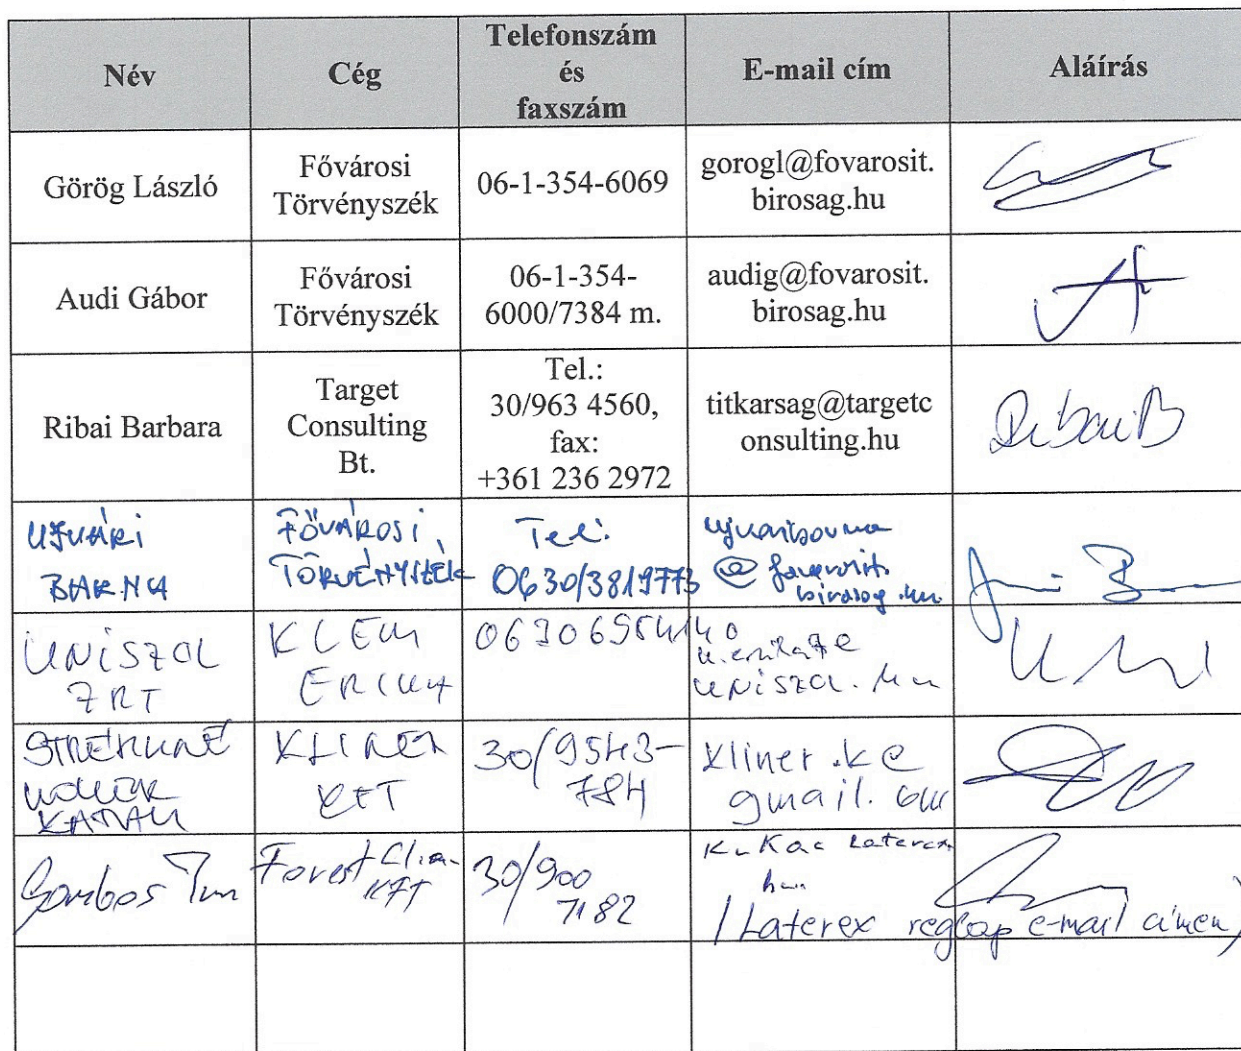 Név
Cég
Telefonszám
és
faxszám
E-mail cím
Aláírás
Görög László
Fővárosi
Törvényszék
06-1-354-6069
gorogl@fovarosit.
birosag.hu
Audi Gábor
Fővárosi
Törvényszék
06-1-354-
6000/7384 m.
audig@fovarosit.
birosag.hu
Ribai Barbara
Target
Consulting
Bt.
Tel.:
30/963 4560,
fax:
+361 236 2972
titkarsag@targetc
onsulting.hu
Ribai B
UJVÁRI
BARNA
FŐVÁROSI
TÖRVÉNYSZÉK
Tel:
0630/3819773
ujvaribarna
@fovarosit.
birosag.hu
UNISZOL
ZRT
KLEM
ERIKA
06306954140
UNISZOL.hu
KATALIN
KLINER
KFT
30/9543-
784
kliner.k@
gmail.com
Gombos
Forest
KFT
30/900
7182
/Laterex e-mail címen/